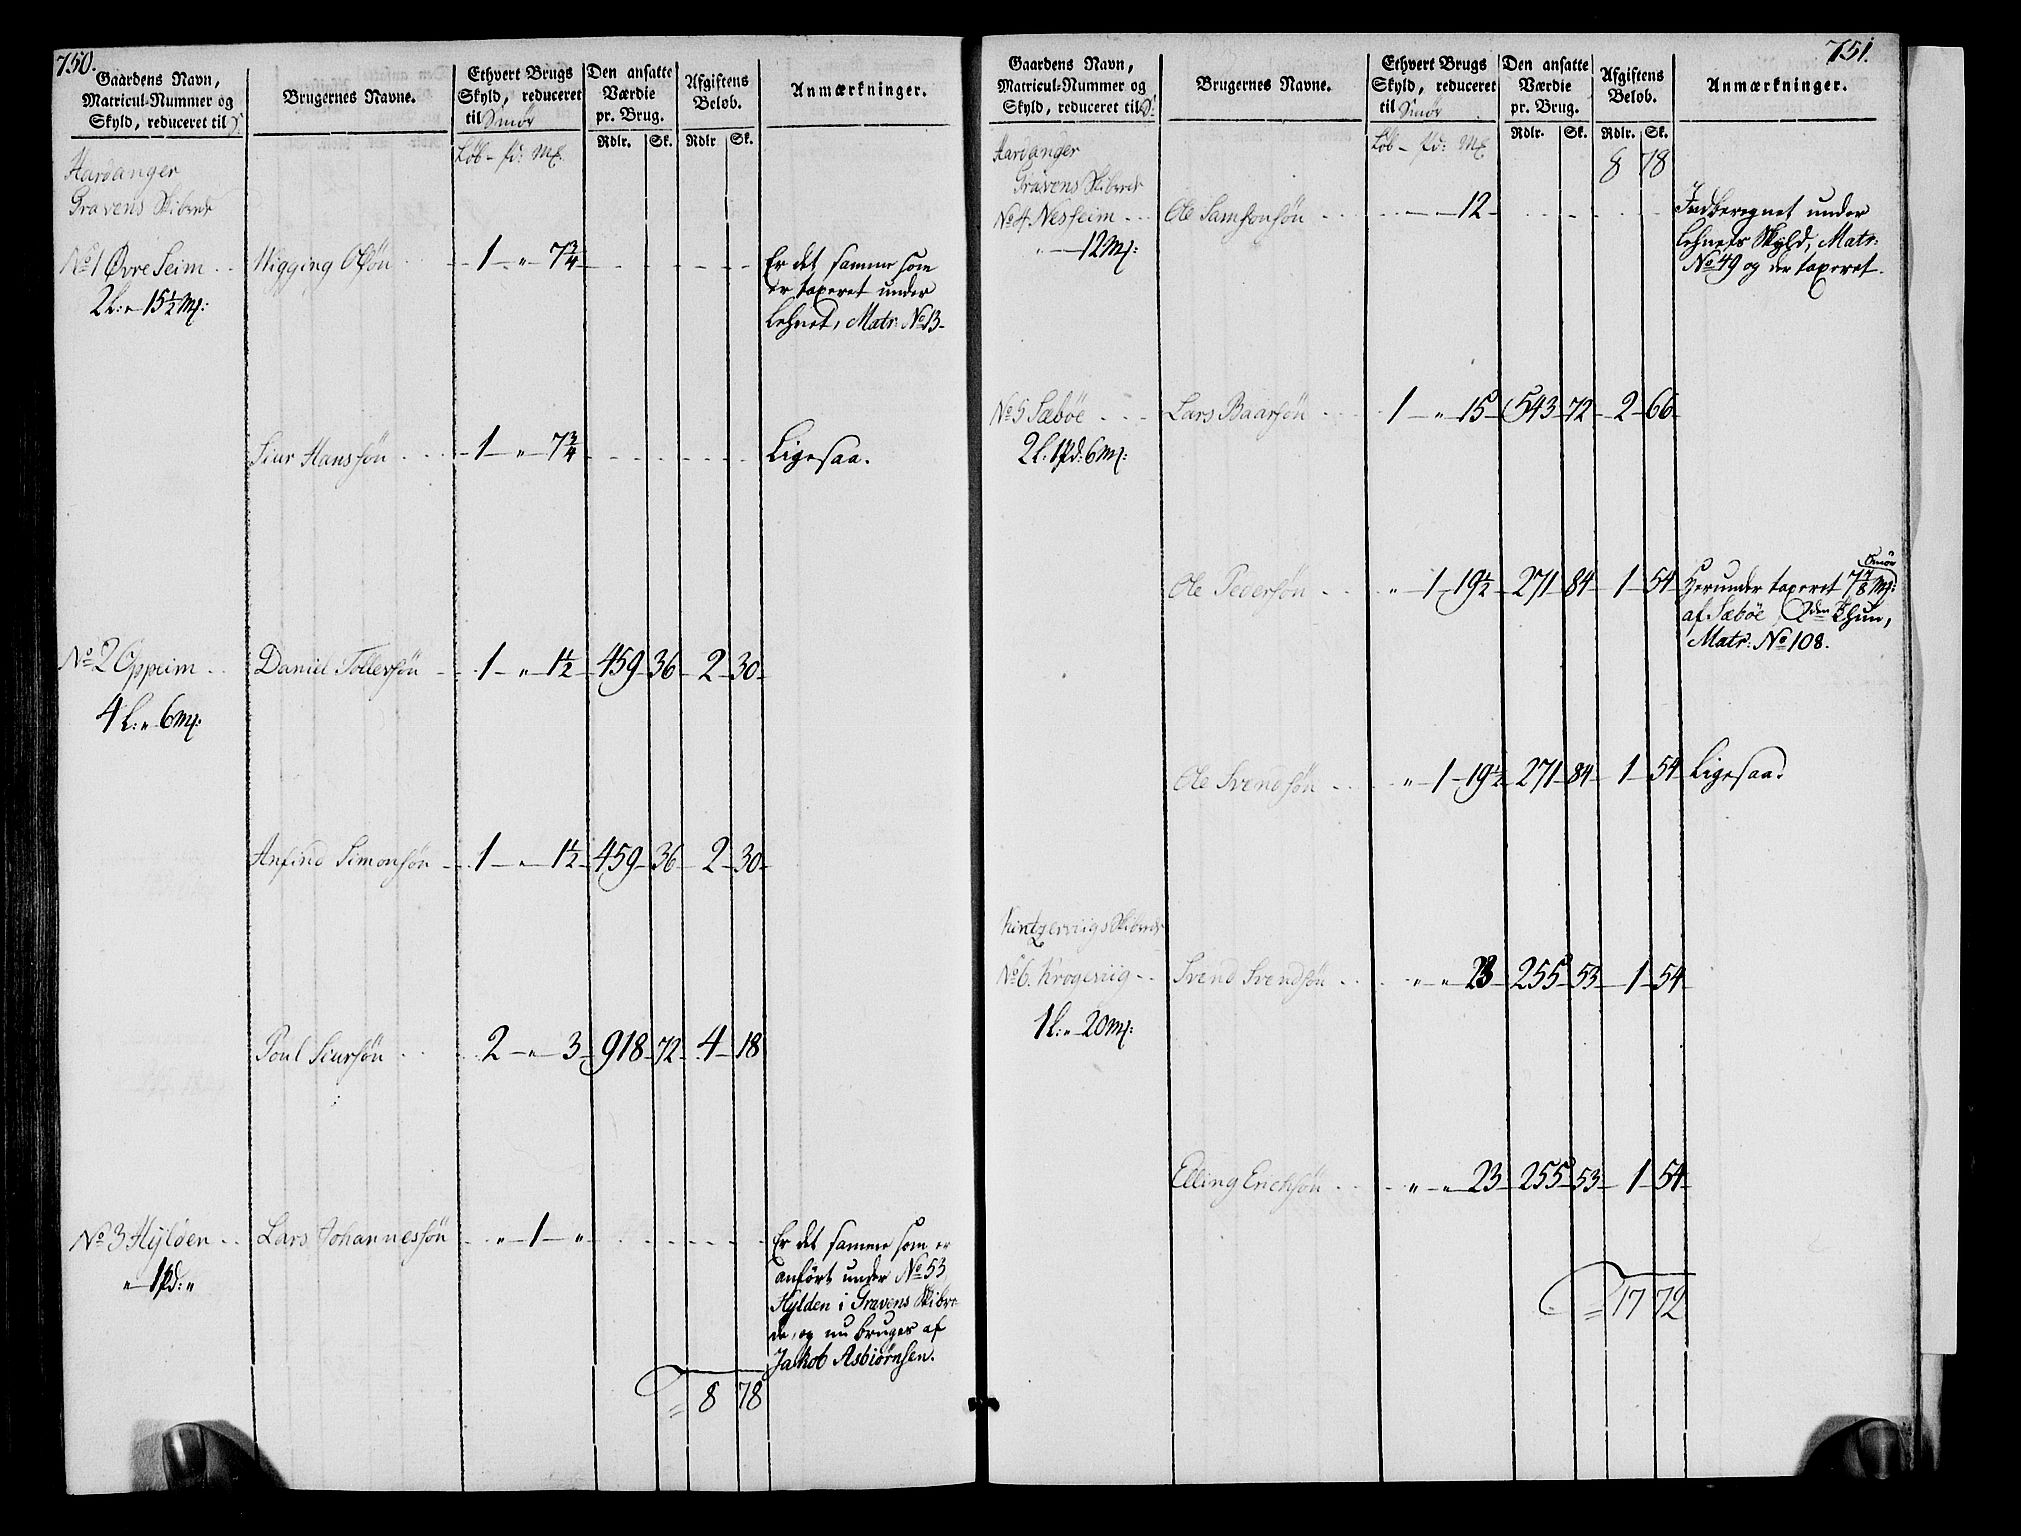 750.
Gaardens Navn,
Matricul-Nummer og
Skyld, reduceret til S:
Brugernes Navne.
Ethvert Brugs
Skyld, reduceret
til Smør
Den ansatte
Værdie
pr. Brug.
Afgiftens
Beløb.
Anmærkninger.
Rdlr. Sk. Rdlr Sk.
Løb - pd: Mk.
Hardanger
Gravens Skibrede
No 1 Øvre Seim . . Wigging Olsøn 1 " 7 3/4
2 L: " 15 1/2 Mk:
Er det samme som
er taxeret under
Lehnet, Matr: No 13
Siur Hanssøn 1 " 7 3/4 Ligesaa.
No 2 Oppeim . . Daniel Tollefsøn 1 " 1 1/2 459 36 2 30
4 L: " 6 Mk:
Anfind Simonsøn 1 " 1 1/2 459 36 2 30
Poul Siursøn 2 " 3 918 72 4 18
No 3 Hylden . . Lars Johannessøn " 1 "
" 1 pd: "
Er det samme som er
anført under No 53
Hylden i Gravens Skibre-
de, og nu bruges af
Jakob Asbiørnsen.
= 8 78
751.
Gaardens Navn,
Matricul-Nummer og
Skyld, reduceret til S:
Brugernes Navne.
Ethvert Brugs
Skyld, reduceret
til Smør
Den ansatte
Værdie
pr. Brug.
Afgiftens
Beløb.
Anmærkninger.
Rdlr. Sk. Rdlr. Sk.
Løb - pd: Mk
8 78
Hardanger
Gravens Skibrede
No 4 Nesheim . . . Ole Samsonsøn 12
" 12 Mk:
Indberegnet under
Lehnets Skyld, Matr:
No 49 og der taxeret.
No 5 Sæbøe . . . Lars Baarsøn 1 " 15 543 72 2 66
2 L: 1 pd: 6 Mk:
Ole Pedersøn " 1 19 1/2 271 84 1 54
Herunder taxeret 7 7/8 Mk: Smør
af Sæbøe, 2den Thun,
Matr: No 108.
Ole Svendsøn " 1 19 1/2 271 84 1 54 Ligesaa.
Kintzerviigs Skibrede
No 6. Krogeviig . . Svend Svendsøn " " 23 255 53 1 54
1 L: " 20 Mk:
Elling Erichsøn " " 23 255 53 1 54
= 17 72